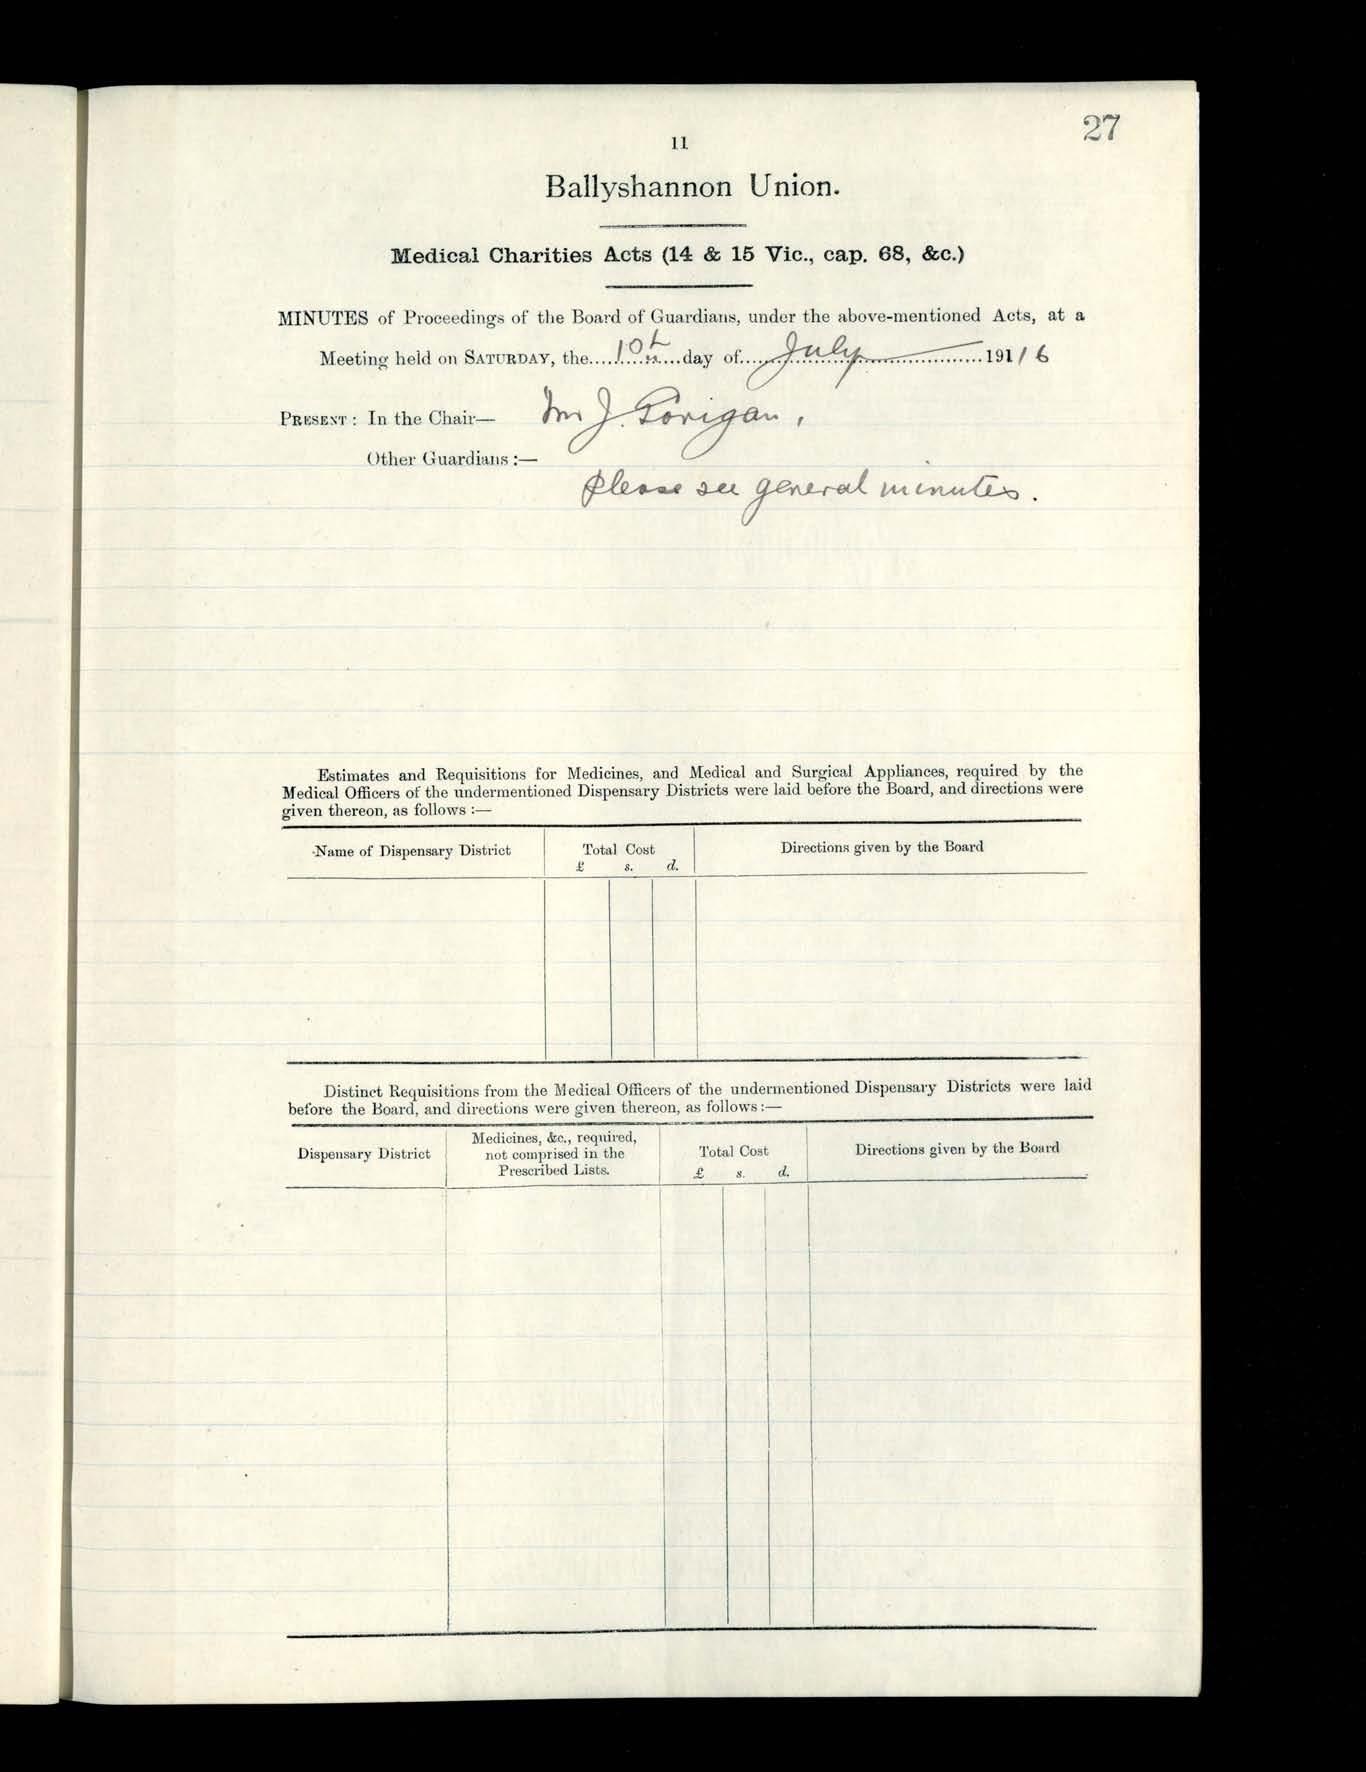 27
11
Ballyshannon Union.
Medical Charities Acts (14 & 15 Vic., cap. 68, &c.)
MINUTES of Proceedings of the Board of Guardians, under the above-mentioned Acts, at a
Meeting held on SATURDAY, the 10th day of July 191/6
PRESENT : In the Chair— Mr J.
Other Guardians :—
Please see general minutes.
Estimates and Requisitions for Medicines, and Medical and Surgical Appliances, required by the
Medical Officers of the undermentioned Dispensary Districts were laid before the Board, and directions were
given thereon, as follows :—
Name of Dispensary District Total Cost Directions given by the Board
£ s. d.
Distinct Requisitions from the Medical Officers of the undermentioned Dispensary Districts were laid
before the Board, and directions were given thereon, as follows :—
Dispensary District
Medicines, &c., required,
not comprised in the
Prescribed Lists.
Total Cost
£ s. d.
Directions given by the Board